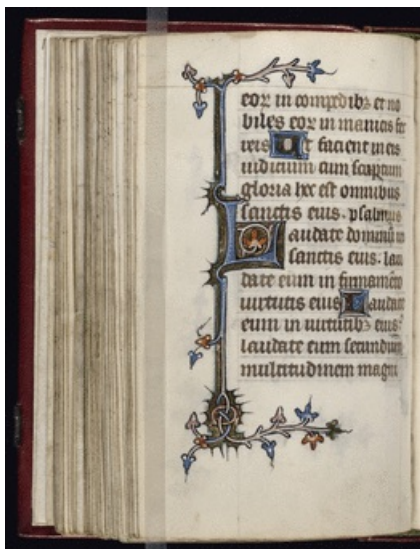 eor in compedibz et no
biles eor in manicis fer
reis Ut faciant in eis
iudicium cum scriptum
gloria hec est omnibus
sanctis eius. psalmus
Laudate dominum in
sanctis eius. lau
date eum in firmamento
uirtutis eius Laudate
eum in uirtutibz eius.
laudate eum secundum
multitudinem magni